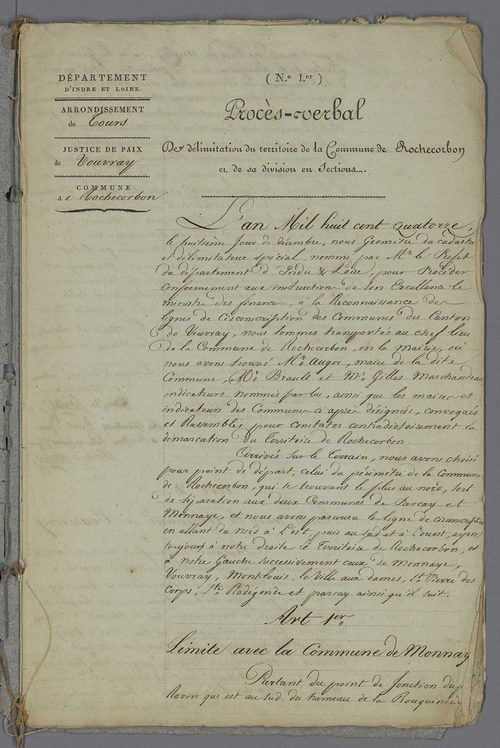 DÉPARTEMENT
D'INDRE ET LOIRE.
ARRONDISSEMENT
de Tours
JUSTICE DE PAIX
de Vouvray
COMMUNE
de Rochecorbon
( N.º I.er )
Procès-verbal
De délimitation du territoire de la Commune de Rochecorbon
et de sa division en Sections.
L'an Mil huit cent Quatorze,
le huitième jour de décembre, nous Géomètre du cadastre
et délimitateur spécial, nommé par Mr. le Préfet
du département d'Indre & Loire, pour Procéder
conformément aux instructions de Son Excellence le
ministre des finances, à la Reconnaissance des
lignes de Circonscription des Communes du Canton
de Vouvray, nous sommes transportés au chef lieu
de la Commune de Rochecorbon, en la mairie, où
nous avons trouvé Mr. Auger, maire de la dite
Commune, Mrs. Brault et Mr. Gilles Marchandeau
indicateurs nommés par lui, ainsi que les maires et
indicateurs des Communes ci après désignées, convoqués
et Rassemblés pour constater contradictoirement la
démarcation du Territoire de Rochecorbon
Arrivés sur le Terrain, nous avons choisi
pour point de départ, celui du périmètre de la Commune
de Rochecorbon, qui se trouvant le plus au nord, sert
de séparation aux deux Communes de Parcay et
Monnaye, et nous avons parcouru la ligne de circonscription
en allant du nord à l'est, puis au sud et à l'ouest, ayant
toujours à notre droite le Territoire de Rochecorbon, et
à notre Gauche successivement ceux de Monnaye,
Vouvray, Montlouis, la Ville aux dames, St. Pierre des
Corps, Ste. Radegonde et parcay ainsi qu'il suit.
Art 1er.
Limite avec la Commune de Monnay
Partant du point de jonction du
Ravin qui est au sud du hameau de la Bouquinière